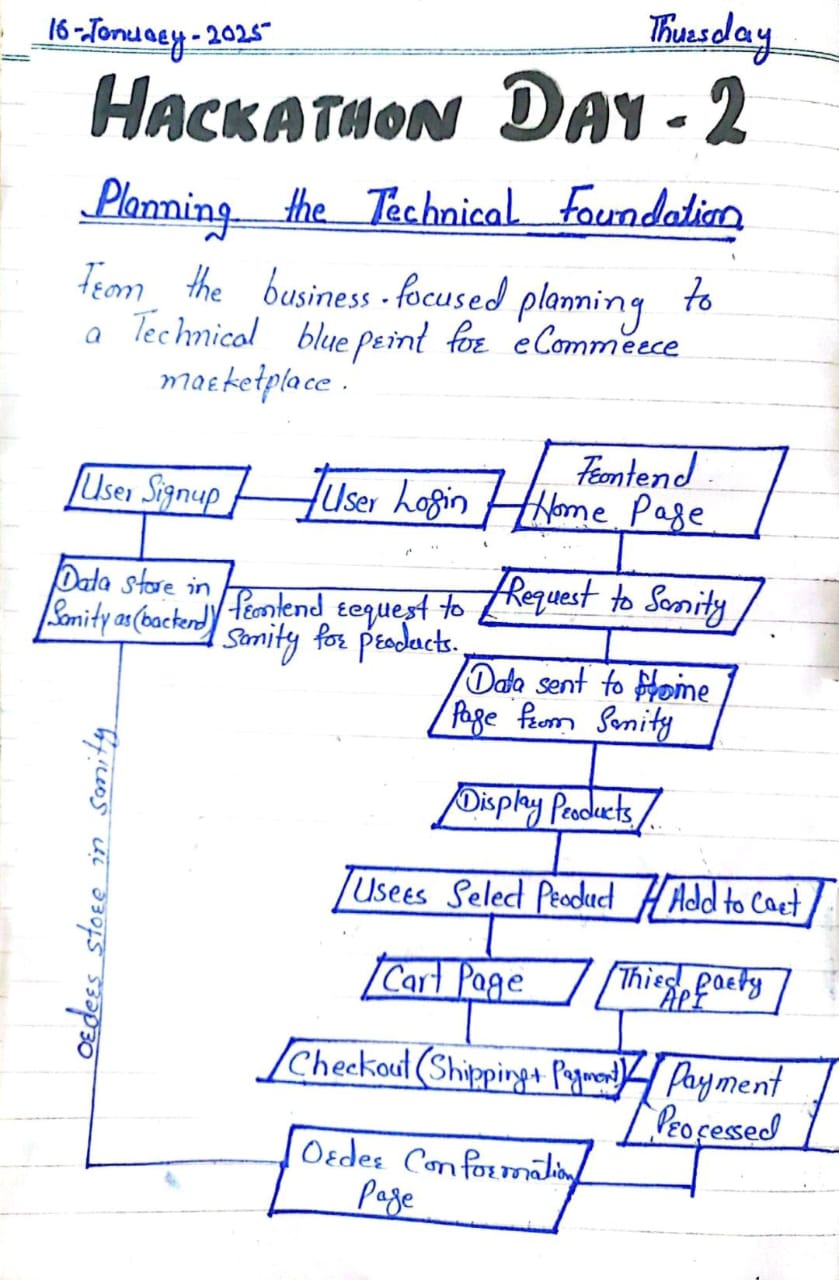 16-January-2025 Thursday
HACKATHON DAY-2
Planning the Technical Foundation
From the business-focused planning to
a Technical blueprint for eCommerce
marketplace.
User Signup
User Login
Frontend
Home Page
Data store in
Sanity as (backend)
frontend request to
Sanity for products.
Request to Sanity
Data sent to Home
Page from Sanity
Display Products
Users Select Product
Add to Cart
Cart Page
Third party
API
Checkout (Shipping + Payment)
Payment
Processed
Order Conformation
Page
orders store in sanity